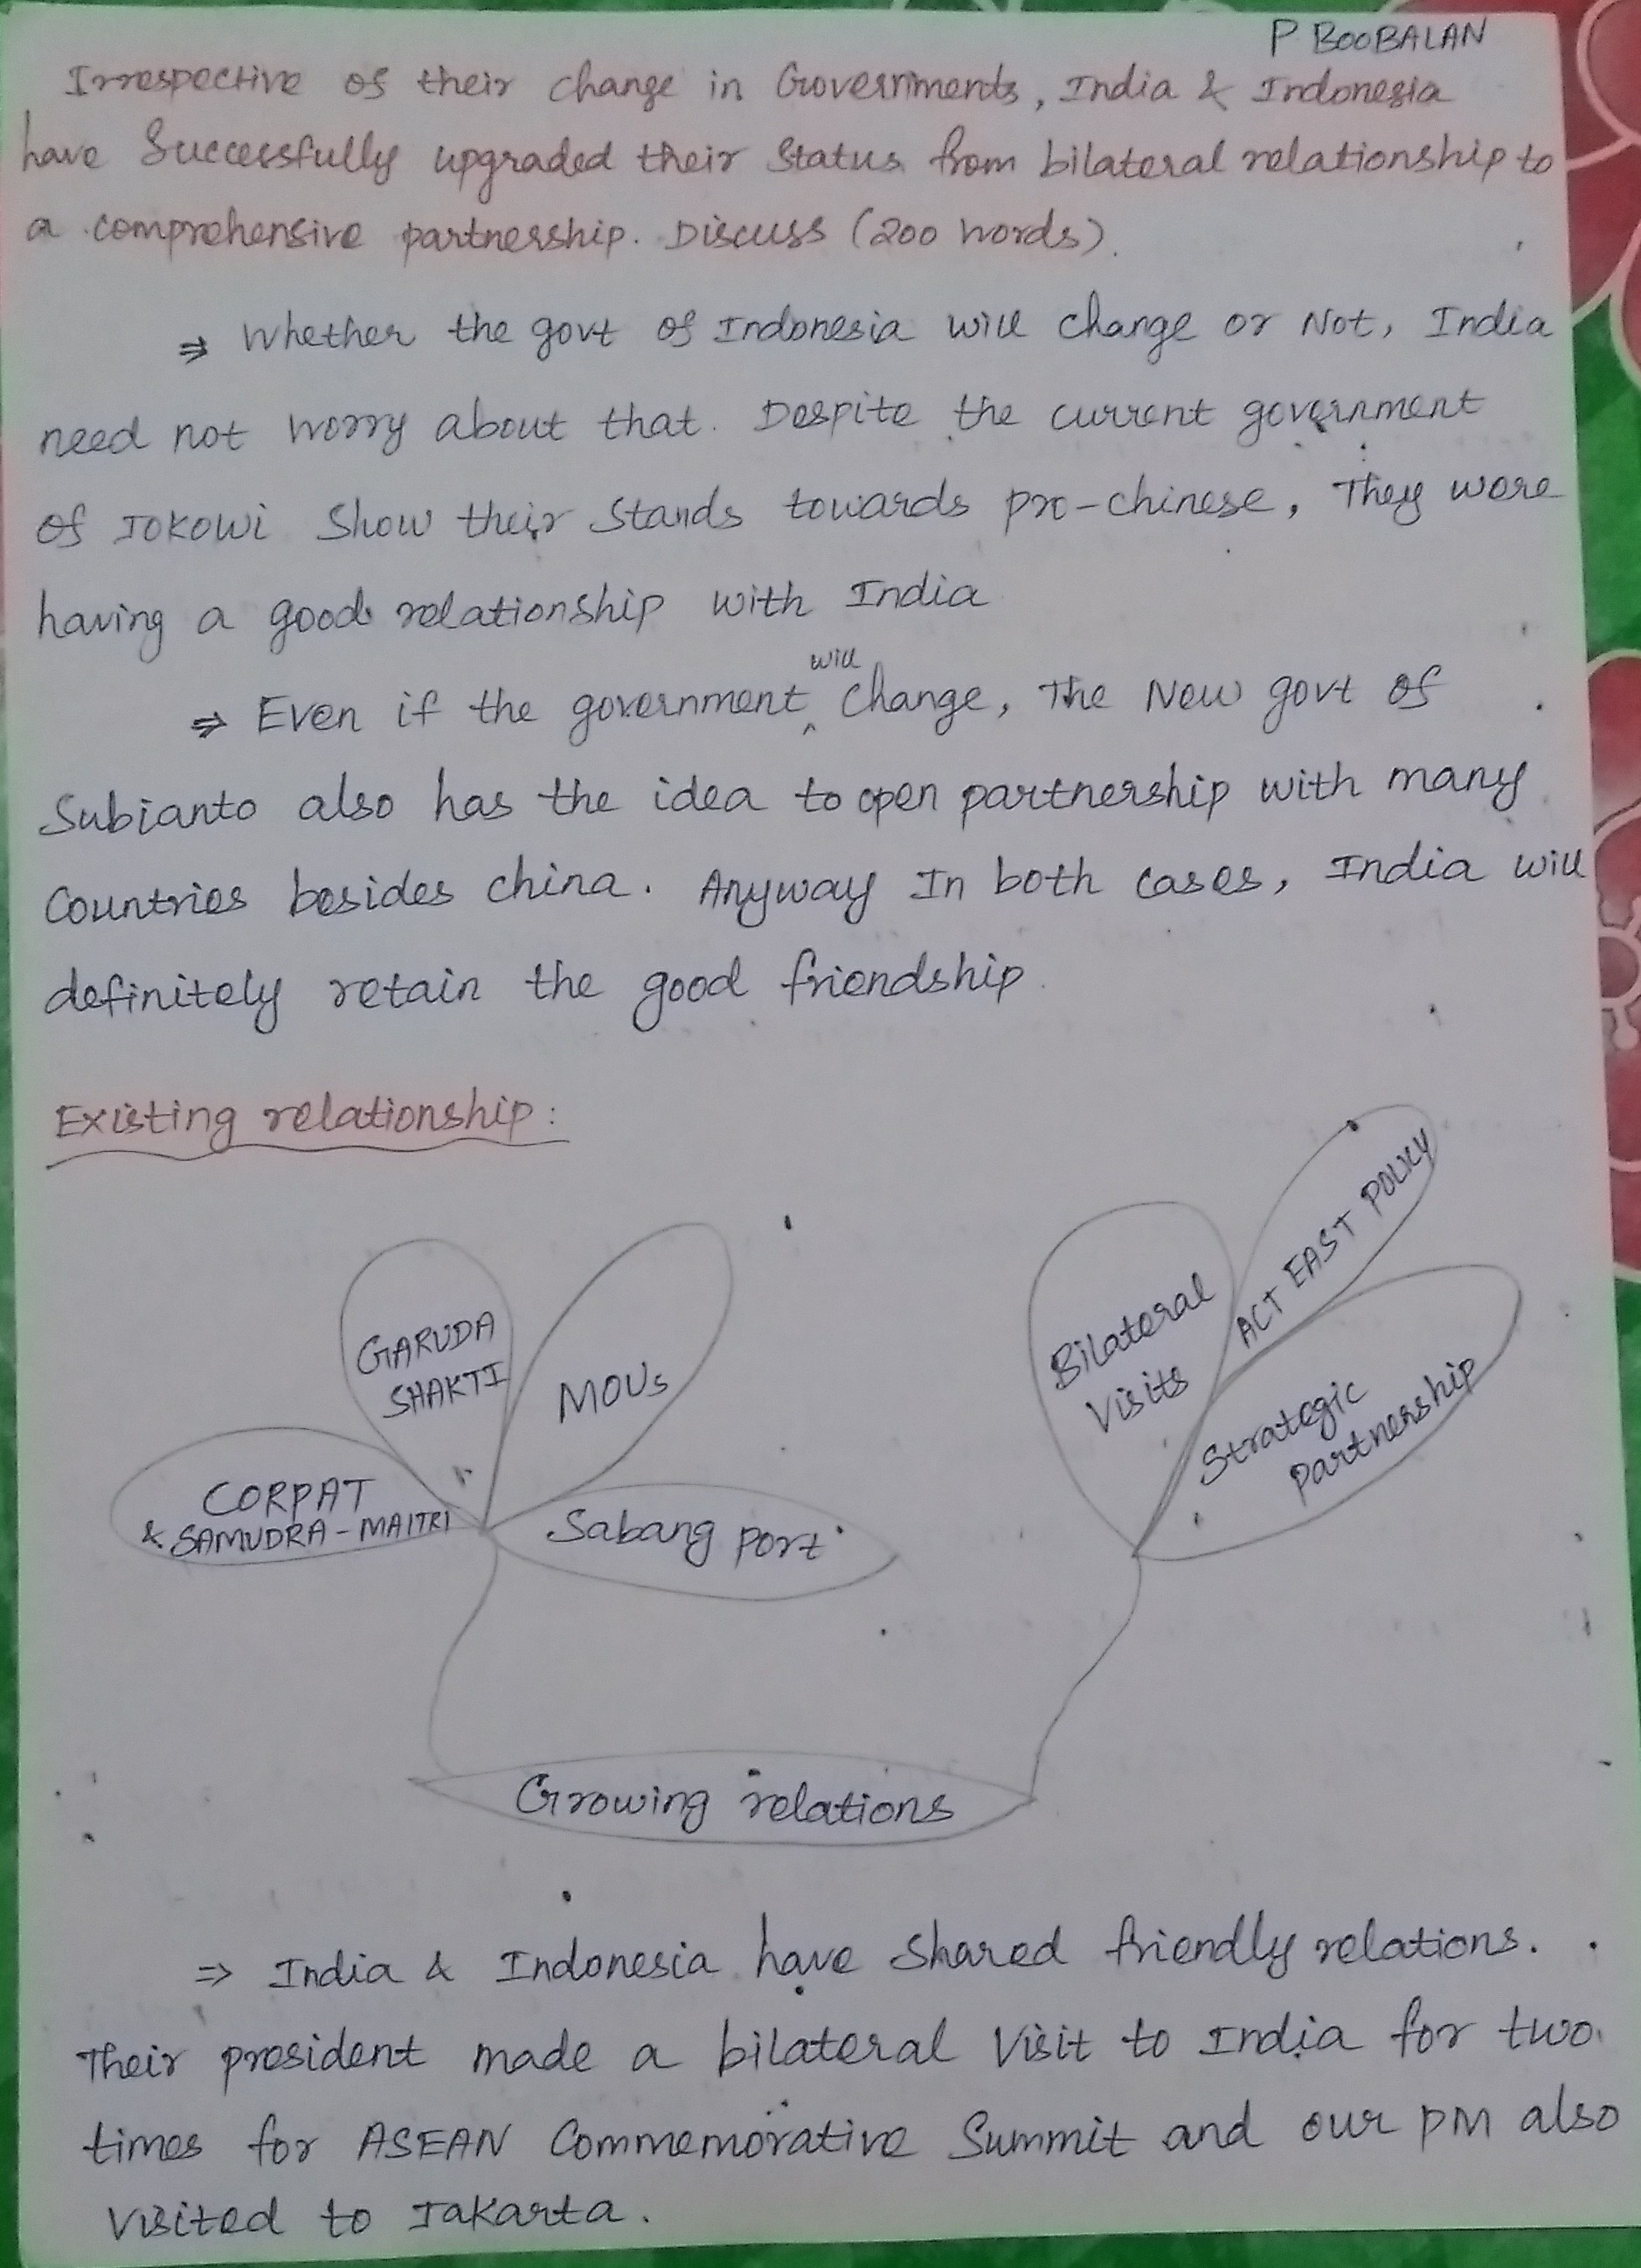 P BOOBALAN
Irrespective of their change in Governments, India & Indonesia
have Successfully upgraded their Status from bilateral relationship to
a comprehensive partnership. Discuss (200 words).
⇒ Whether the govt of Indonesia will change or Not, India
need not worry about that. Despite the current government
of JOKOWI Show their Stands towards pro-chinese, They were
having a good relationship with India
⇒ Even if the government will change, The New govt of
Subianto also has the idea to open partnership with many
Countries besides china. Anyway In both cases, India will
definitely retain the good friendship.
Existing relationship:
GARUDA
SHAKTI
MOUs
CORPAT
& SAMUDRA-MAITRI
Sabang port
Bilateral
Visits
ACT EAST POLICY
Strategic
partnership
Growing relations
⇒ India & Indonesia have Shared friendly relations.
Their president made a bilateral Visit to India for two
times for ASEAN Commemorative Summit and our PM also
visited to Jakarta.